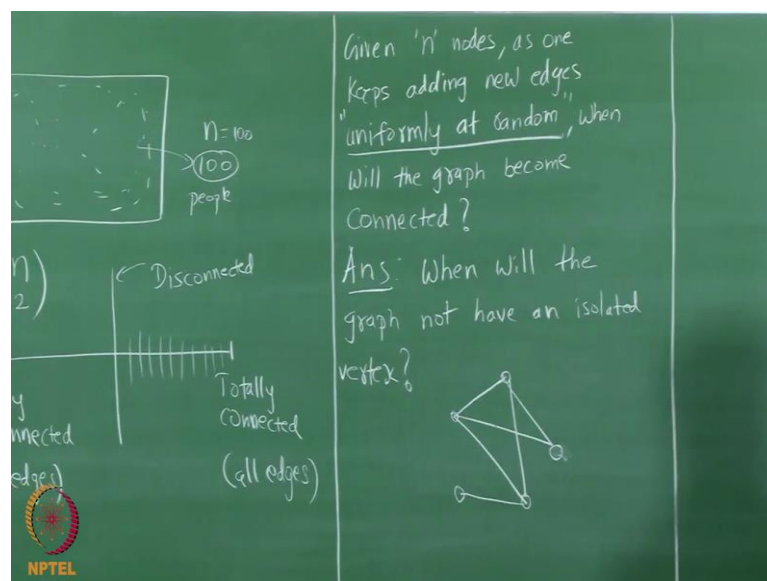 n=100
100
people
n
2)
Disconnected
Totally
connected
(all edges)
y
nnected
edges)
Given 'n' nodes, as one
keeps adding new edges
"uniformly at random", when
will the graph become
connected?
Ans: When will the
graph not have an isolated
vertex?
NPTEL